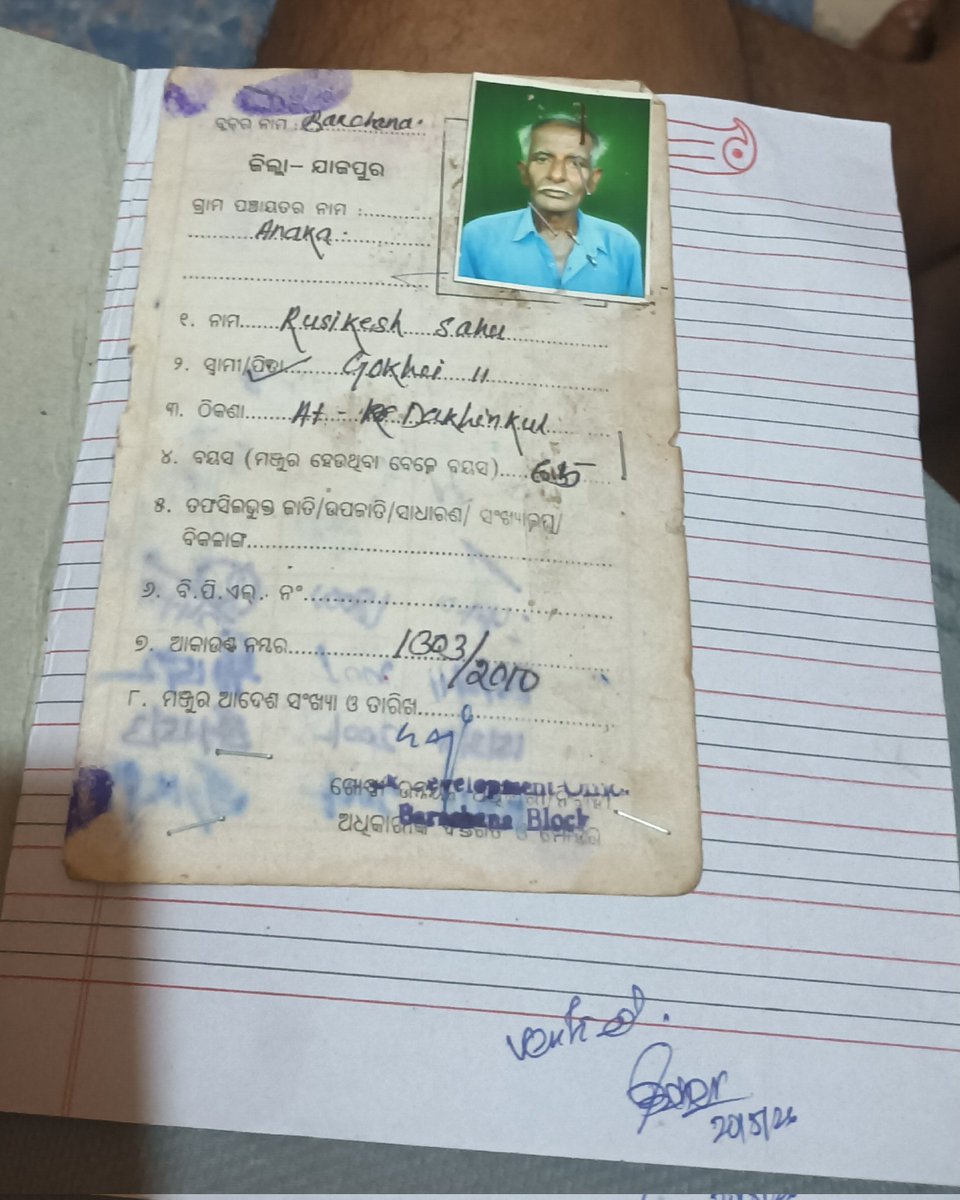 ବ୍ଲକର ନାମ : Barchana.
ଜିଲ୍ଲା- ଯାଜପୁର
ଗ୍ରାମ ପଞ୍ଚାୟତର ନାମ :.........
Anaka.
୧. ନାମ...... Rusikesh Sahu
୨. ସ୍ୱାମୀ/ପିତା...... Gokhei 11
୩. ଠିକଣା...... At - Dakhinkul
୪. ବୟସ (ମଞ୍ଜୁର ହେଉଥିବା ବେଳେ ବୟସ)....
୫. ତଫସିଲଭୁକ୍ତ ଜାତି/ଉପଜାତି/ସାଧାରଣ/ ସଂଖ୍ୟାଲଘୁ/
ବିକଳାଙ୍ଗ......
୬. ବି.ପି.ଏଲ୍. ନଂ......
୭. ଆକାଉଣ୍ଟ ନମ୍ବର...... 1303/2010
୮. ମଞ୍ଜୁର ଆଦେଶ ସଂଖ୍ୟା ଓ ତାରିଖ......
Development
Barachana Block
verified.
20/5/26